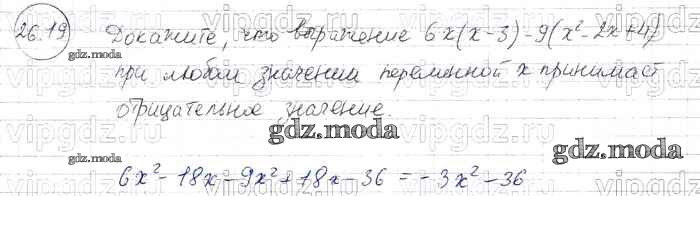 26.19
Докажите, что выражение 6x(x-3)-9(x²-2x+4)
при любом значении переменной x принимает
отрицательное значение
gdz.moda
gdz.moda
gdz.moda
gdz.moda
6x²-18x-9x²+18x-36=-3x²-36